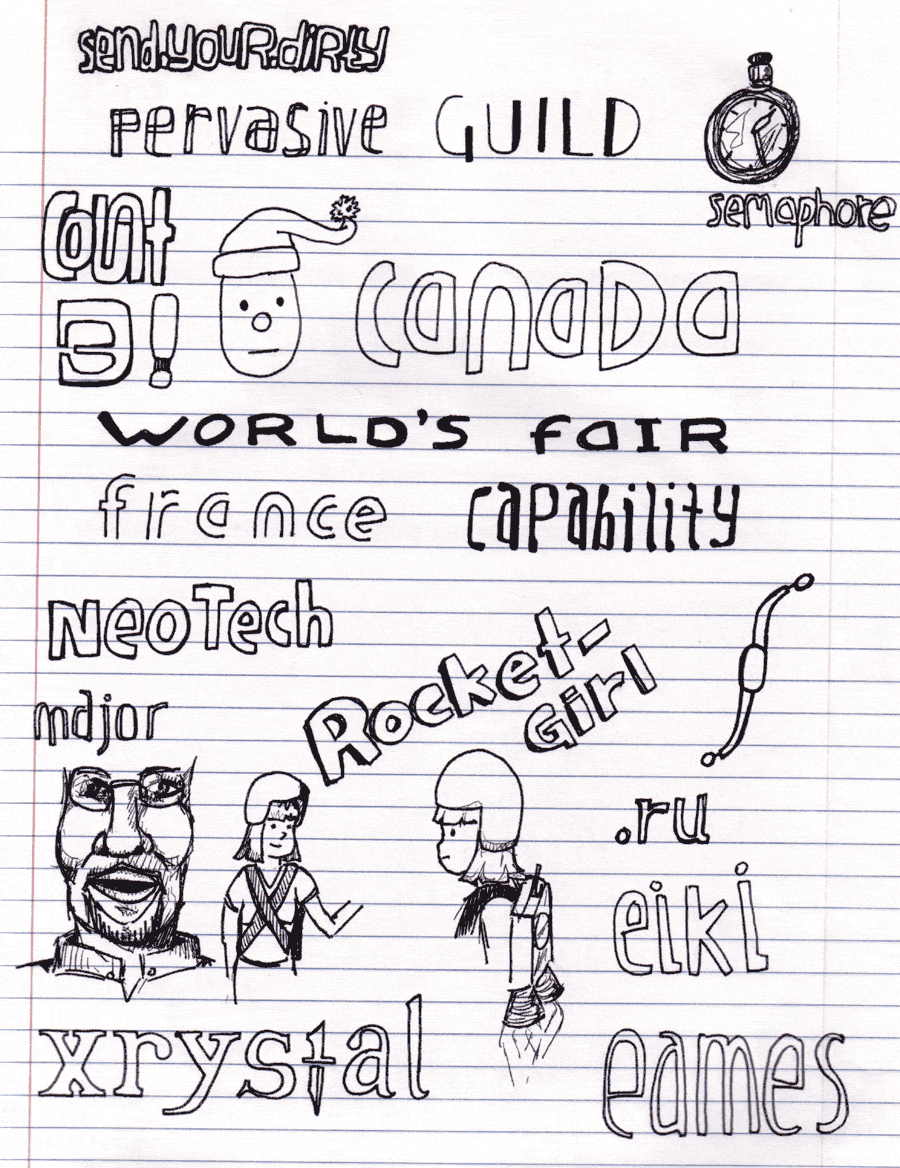 send.youR.diRty
pervasive GUILD
semaphore
count
3!
CaNaDa
WORLD'S faIR
france capability
NeoTech
Rocket-
Girl
major
.ru
eiki
xrystal
eames